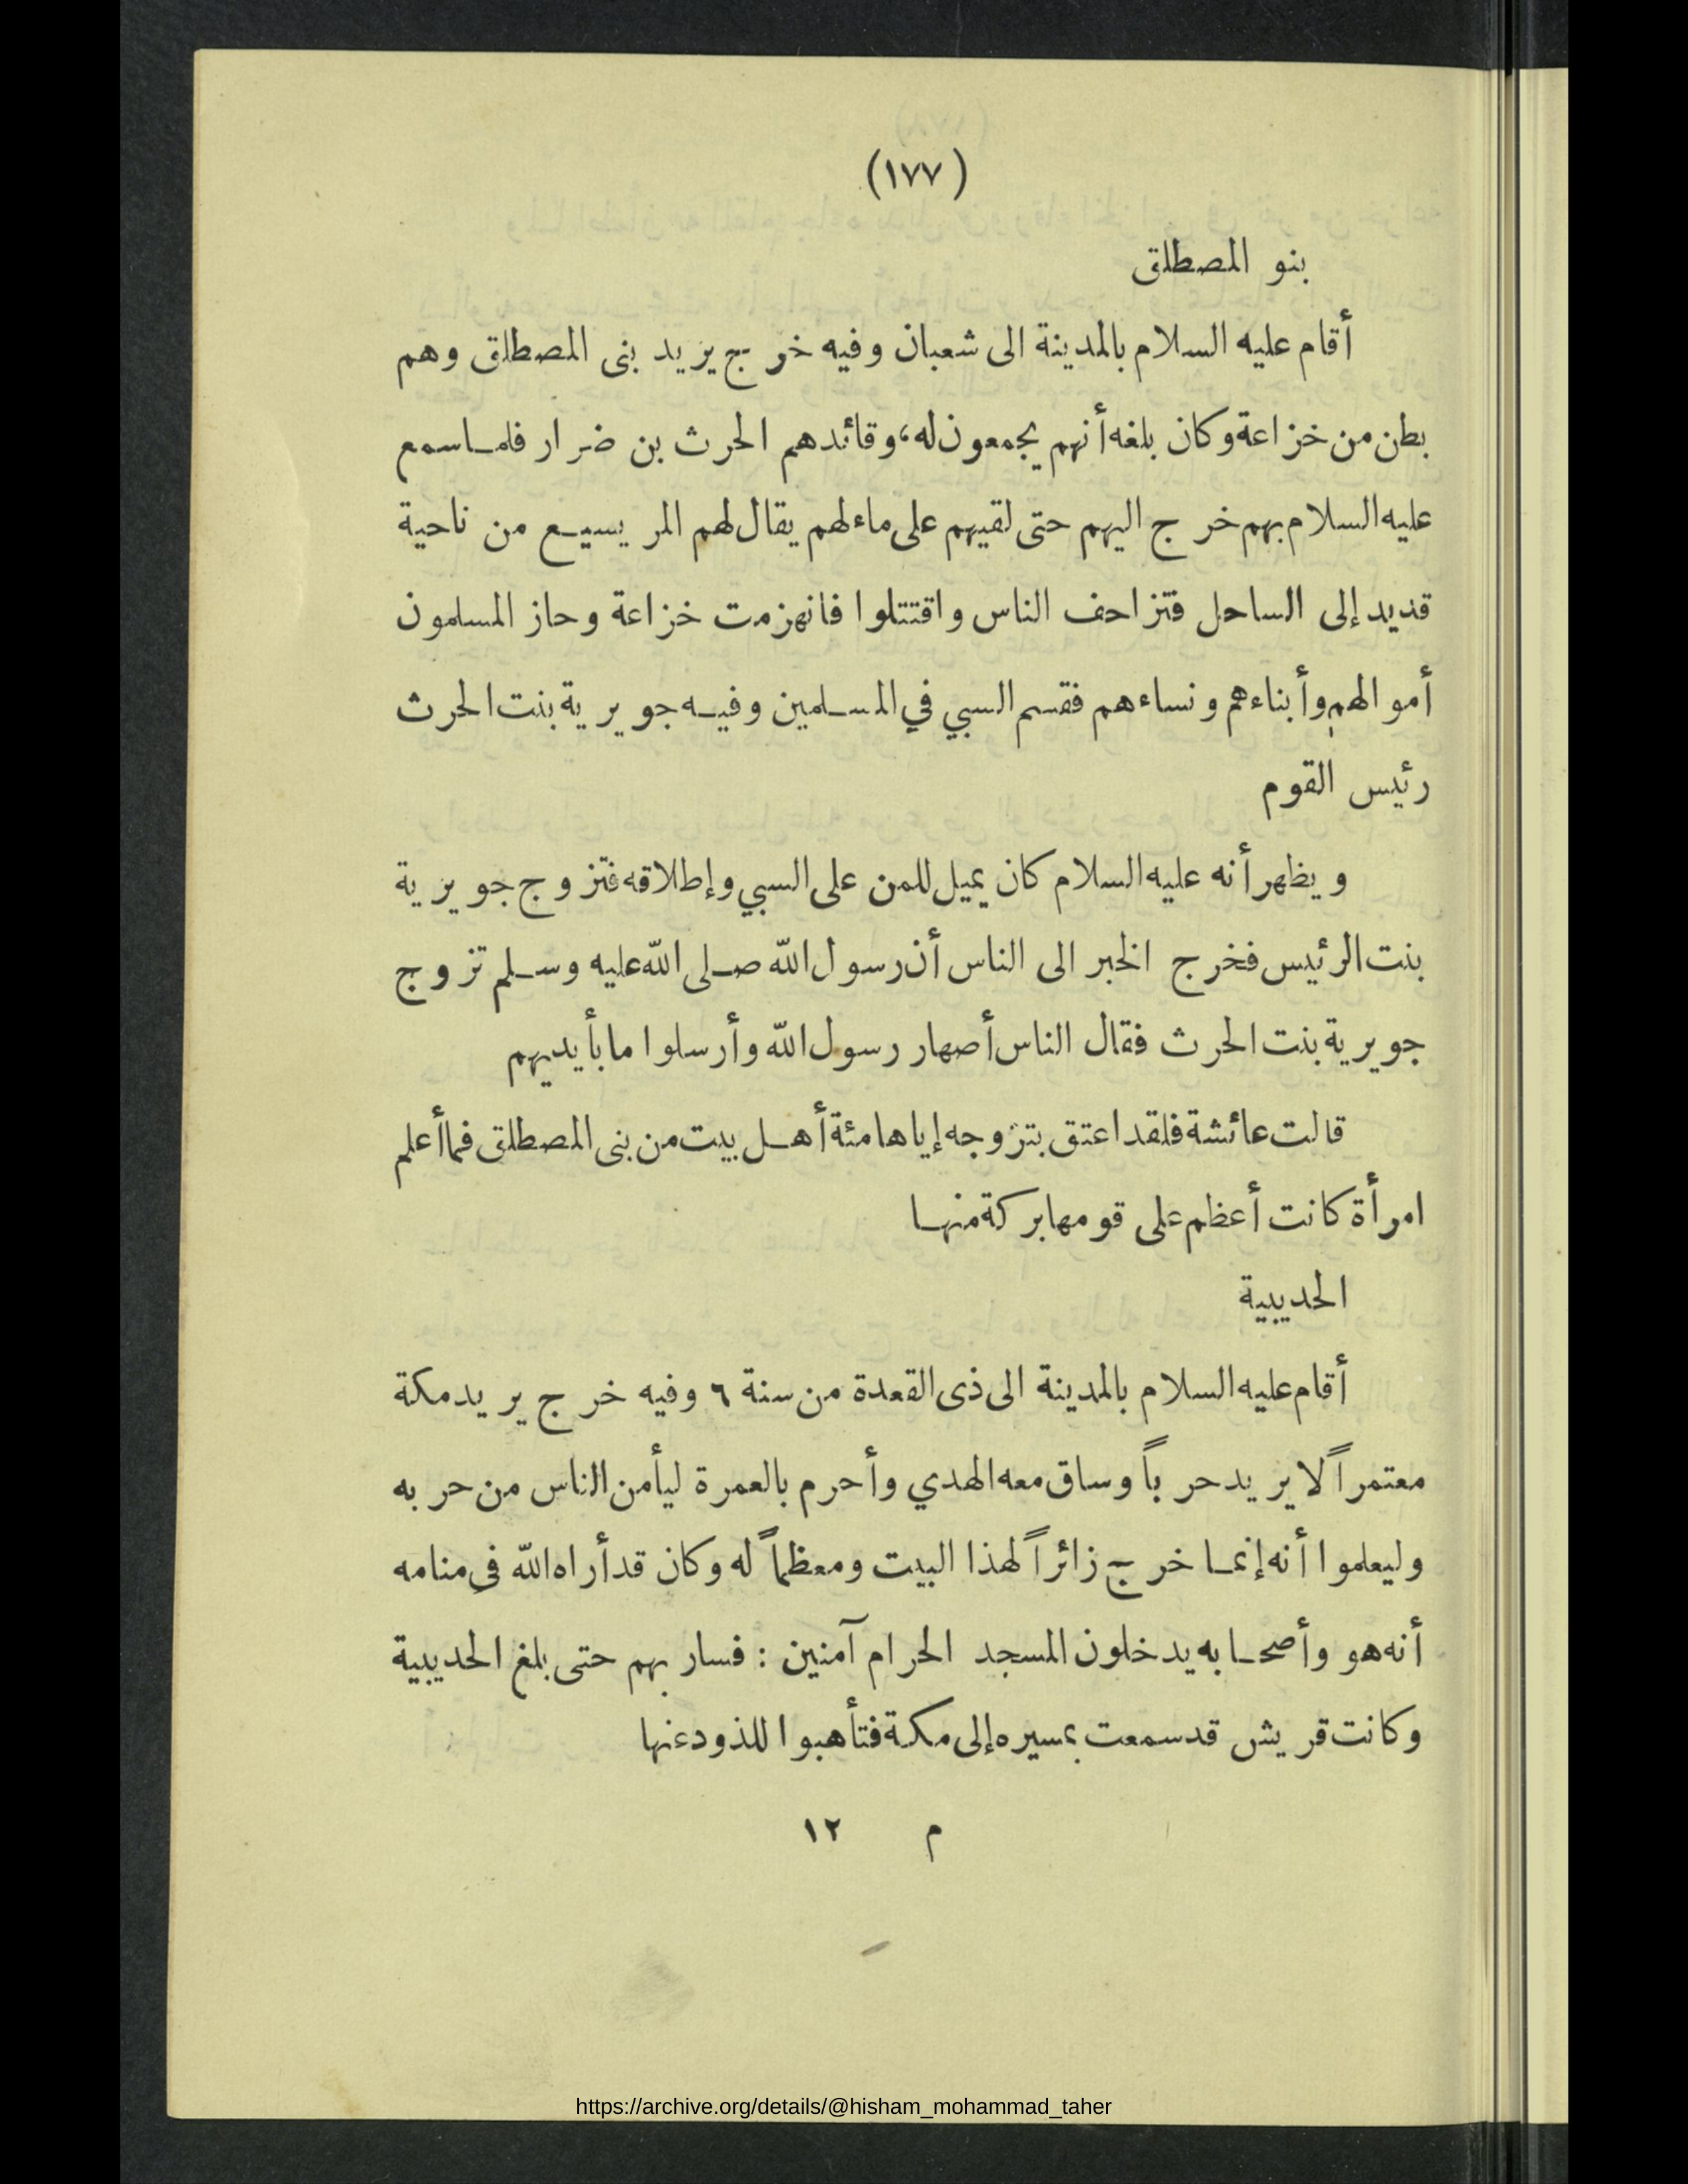 (١٧٧)
بنو المصطلق
أقام عليه السلام بالمدينة الى شعبان وفيه خرج يريد بنى المصطلق وهم
بطن من خزاعة وكان بلغه أنهم يجمعون له، وقائدهم الحرث بن ضرار فلما سمع
عليه السلام بهم خرج اليهم حتى لقيهم على ماء لهم يقال لهم المريسيع من ناحية
قديد إلى الساحل فتزاحف الناس واقتتلوا فانهزمت خزاعة وحاز المسلمون
أموالهم وأبناءهم ونساءهم فقسم السبي في المسلمين وفيه جويرية بنت الحرث
رئيس القوم
ويظهر أنه عليه السلام كان يميل للمن على السبي وإطلاقه فتزوج جويرية
بنت الرئيس فخرج الخبر الى الناس أن رسول الله صلى الله عليه وسلم تزوج
جويرية بنت الحرث فقال الناس أصهار رسول الله وأرسلوا ما بأيديهم
قالت عائشة فلقد اعتق بتزوجه إياها مئة أهل بيت من بنى المصطلق فما أعلم
امرأة كانت أعظم على قومها بركة منها
الحديبية
أقام عليه السلام بالمدينة الى ذى القعدة من سنة ٦ وفيه خرج يريد مكة
معتمراً لا يريد حرباً وساق معه الهدي وأحرم بالعمرة ليأمن الناس من حربه
وليعلموا أنه إنما خرج زائراً لهذا البيت ومعظماً له وكان قد أراه الله في منامه
أنه هو وأصحابه يدخلون المسجد الحرام آمنين : فسار بهم حتى بلغ الحديبية
وكانت قريش قد سمعت بمسيره إلى مكة فتأهبوا للذود عنها
م ١٢
https://archive.org/details/@hisham_mohammad_taher